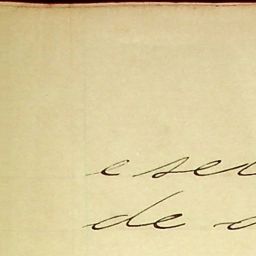 e seu
de